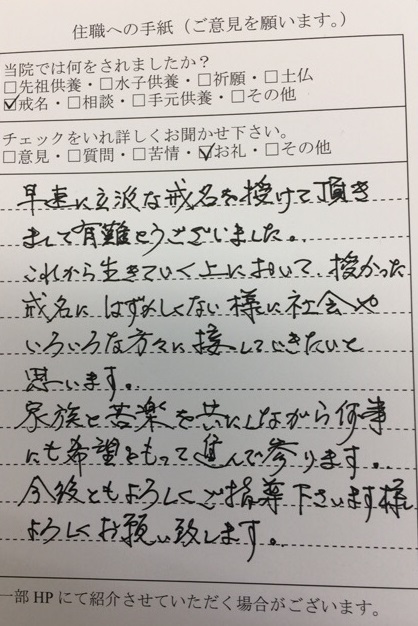 住職への手紙（ご意見を願います。）
当院では何をされましたか？
□先祖供養・□水子供養・□祈願・□土仏
☑戒名・□相談・□手元供養・□その他
チェックをいれ詳しくお聞かせ下さい。
□意見・□質問・□苦情・☑お礼・□その他
早速に立派な戒名を授けて頂き
まして有難とうございました。
これから生きていく上において、授かった
戒名に はずかしくない様に社会や
いろいろな方々に接していきたいと
思います。
家族と苦楽を共にしながら何事
にも希望をもって進んで参ります。
今後ともよろしくご指導下さいます様
よろしくお願い致します。
一部HPにて紹介させていただく場合がございます。